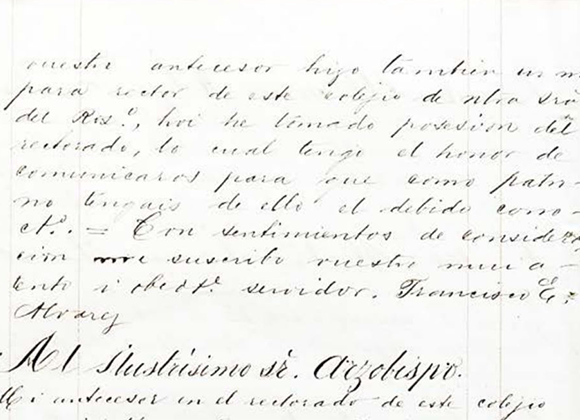 vuestro antecesor hizo tambien un n
para rector de este colejio de ntra Sra
del Ros.º, hoi he tomado posesion del
rectorado, lo cual tengo el honor de
comunicaros para que como patro-
no tengais de ello el debido cono-
ct.º = Con sentimientos de considera
cion me suscribo vuestro mui a-
tento i obed.te servidor. Francisco E.
Alvarez
Al Ilustrísimo sr. Arzobispo.
Mi antecesor en el rectorado de este colejio